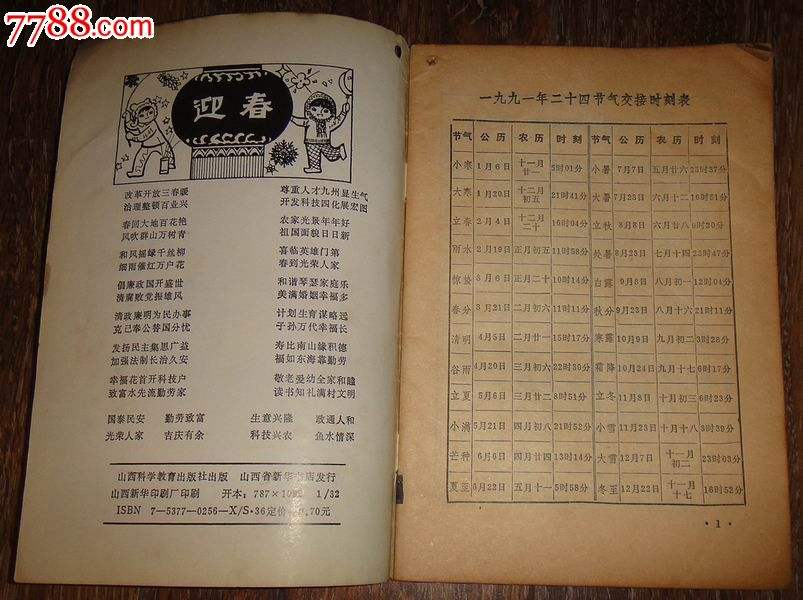 7788.com
迎春
改革开放三春暖 尊重人才九州显生气
治理整顿百业兴 开发科技四化展宏图
春回大地百花艳 农家光景年年好
风吹群山万树青 祖国面貌日日新
和风摇绿千丝柳 喜临英雄门第
细雨催红万户花 春到光荣人家
倡廉政国开盛世 和谐琴瑟家庭乐
清腐败党振雄风 美满婚姻幸福多
清政廉明为民办事 计划生育谋略远
克己奉公替国分忧 子孙万代幸福长
发扬民主集思广益 寿比南山缘积德
加强法制长治久安 福如东海靠勤劳
幸福花首开科技户 敬老爱幼全家和睦
致富水先流勤劳家 读书知礼满村文明
国泰民安 勤劳致富 生意兴隆 政通人和
光荣人家 吉庆有余 科技兴农 鱼水情深
山西科学教育出版社出版 山西省新华书店发行
山西新华印刷厂印刷 开本:787×1092 1/32
ISBN 7-5377-0256-X/S·36定价 0.70元
一九九一年二十四节气交接时刻表
节气 公历 农历 时刻 节气 公历 农历 时刻
小寒 1月6日 十一月廿一 5时01分 小暑 7月7日 五月廿六 22时37分
大寒 1月20日 十二月初五 21时41分 大暑 7月23日 六月十二 16时51分
立春 2月4日 十二月二十 16时04分 立秋 8月8日 六月廿八 9时20分
雨水 2月19日 正月初五 11时58分 处暑 8月23日 七月十四 23时47分
惊蛰 3月6日 正月二十 10时14分 白露 9月8日 八月初一 12时04分
春分 3月21日 二月初六 11时02分 秋分 9月23日 八月十六 21时11分
清明 4月5日 二月廿一 15时17分 寒露 10月9日 九月初二 3时28分
谷雨 4月20日 三月初六 22时30分 霜降 10月24日 九月十七 6时17分
立夏 5月6日 三月廿二 8时51分 立冬 11月8日 十月初三 6时23分
小满 5月21日 四月初八 21时52分 小雪 11月23日 十月十八 3时39分
芒种 6月6日 四月廿四 13时14分 大雪 12月7日 十一月初二 23时03分
夏至 6月22日 五月十一 5时58分 冬至 12月22日 十一月十七 16时52分
·1·